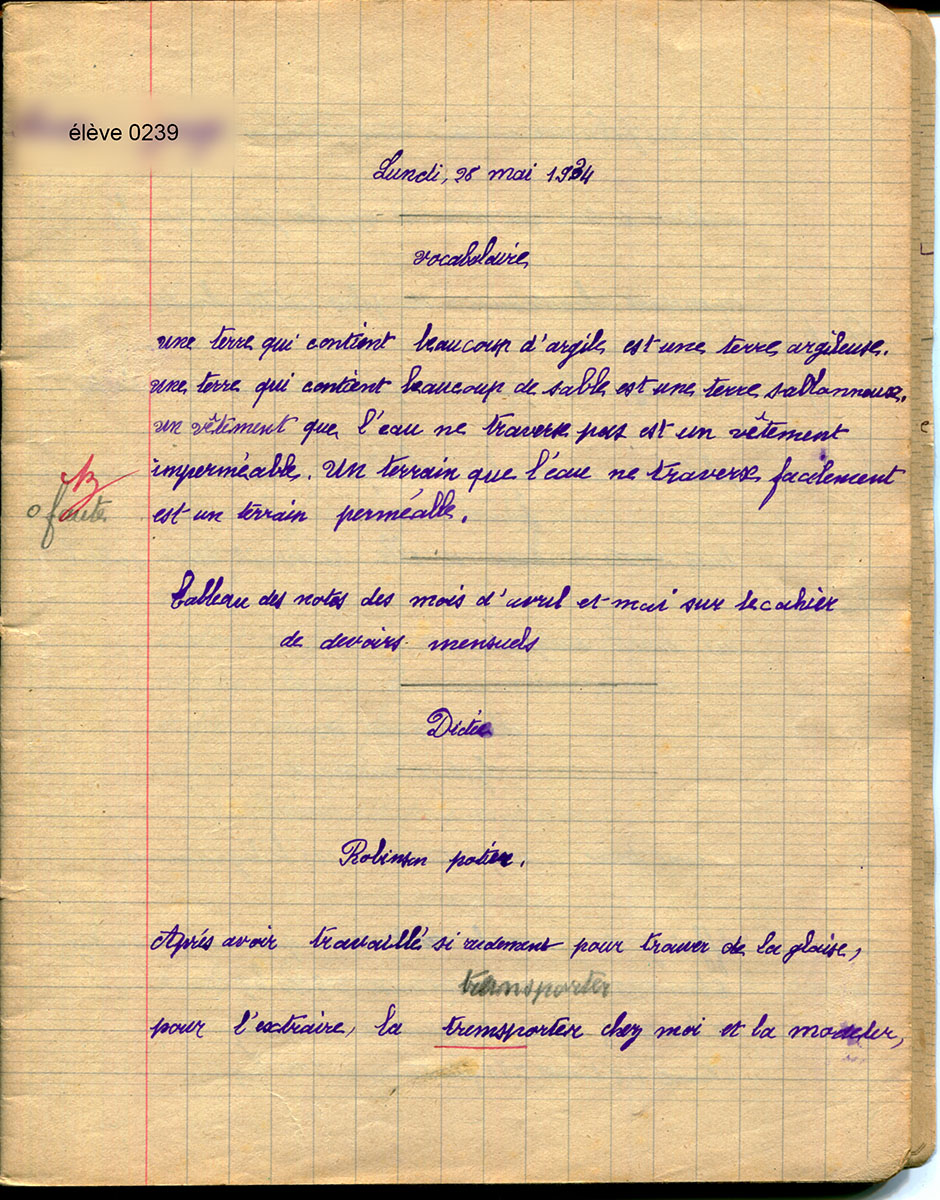 élève 0239
Lundi, 28 mai 1934
vocabulaire
une terre qui contient beaucoup d'argile est une terre argileuse.
une terre qui contient beaucoup de sable est une terre sablonneuse.
un vêtement que l'eau ne traverse pas est un vêtement
imperméable. Un terrain que l'eau ne traverse facilement
0 faute
est un terrain perméable.
Tableau des notes des mois d'avril et mai sur le cahier
de devoirs mensuels
Dictée
Robinson potier.
Après avoir travaillé si rudement pour trouver de la glaise,
transporter
pour l'extraire, la tremsporter chez moi et la modeler,